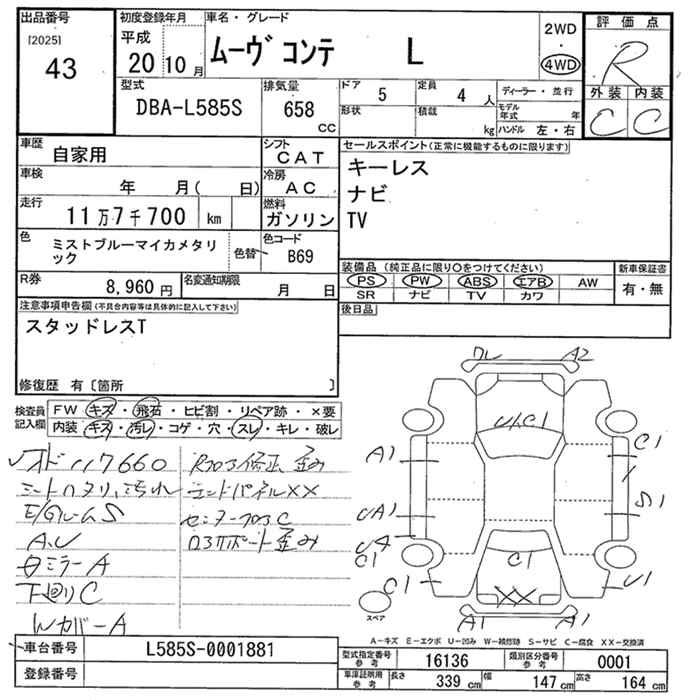 出品番号
[2025]
43
初度登録年月
平成
20 10 月
車名・グレード
ムーヴ コンテ L
2WD
・
4WD
評価点
R
外装 内装
C C
型式
DBA-L585S
排気量
658 cc
ドア
5
定員
4 人
形状
積載
kg
ディーラー・並行
モデル年式 年
ハンドル 左・右
車歴
自家用
シフト
CAT
車検
年 月( 日)
冷房
AC
走行
11万7千700 km
燃料
ガソリン
色
ミストブルーマイカメタリック
色替
色コード
B69
R券
8,960 円
名変通知期限
月 日
セールスポイント(正常に機能するものに限ります)
キーレス
ナビ
TV
装備品 (純正品に限り○をつけてください)
PS PW ABS エアB AW
SR ナビ TV カワ
新車保証書
有・無
後日品
注意事項申告欄(不具合内容等は具体的に記入して下さい)
スタッドレスT
修復歴 有〔箇所 〕
検査員記入欄
FW キズ・飛石・ヒビ割・リペア跡・×要
内装 キズ・汚レ・コゲ・穴・スレ・キレ・破レ
シートハヌリ、汚れ
E/GルームS
A.U
ミラーA
下廻りC
WカバーA
修正 歪み
エンドパネルXX
センターフロアC
サポート歪み
A2
A1
C1
A1
S1
UA1
C1
C1
C1
U1
XX
A1
A1
スペア
A−キズ E−エクボ U−凹み W−補修跡 S−サビ C−腐食 XX−交換済
車台番号
L585S-0001881
登録番号
型式指定番号 参考
16136
類別区分番号 参考
0001
車庫証明用 参考
長さ 339 cm
幅 147 cm
高さ 164 cm